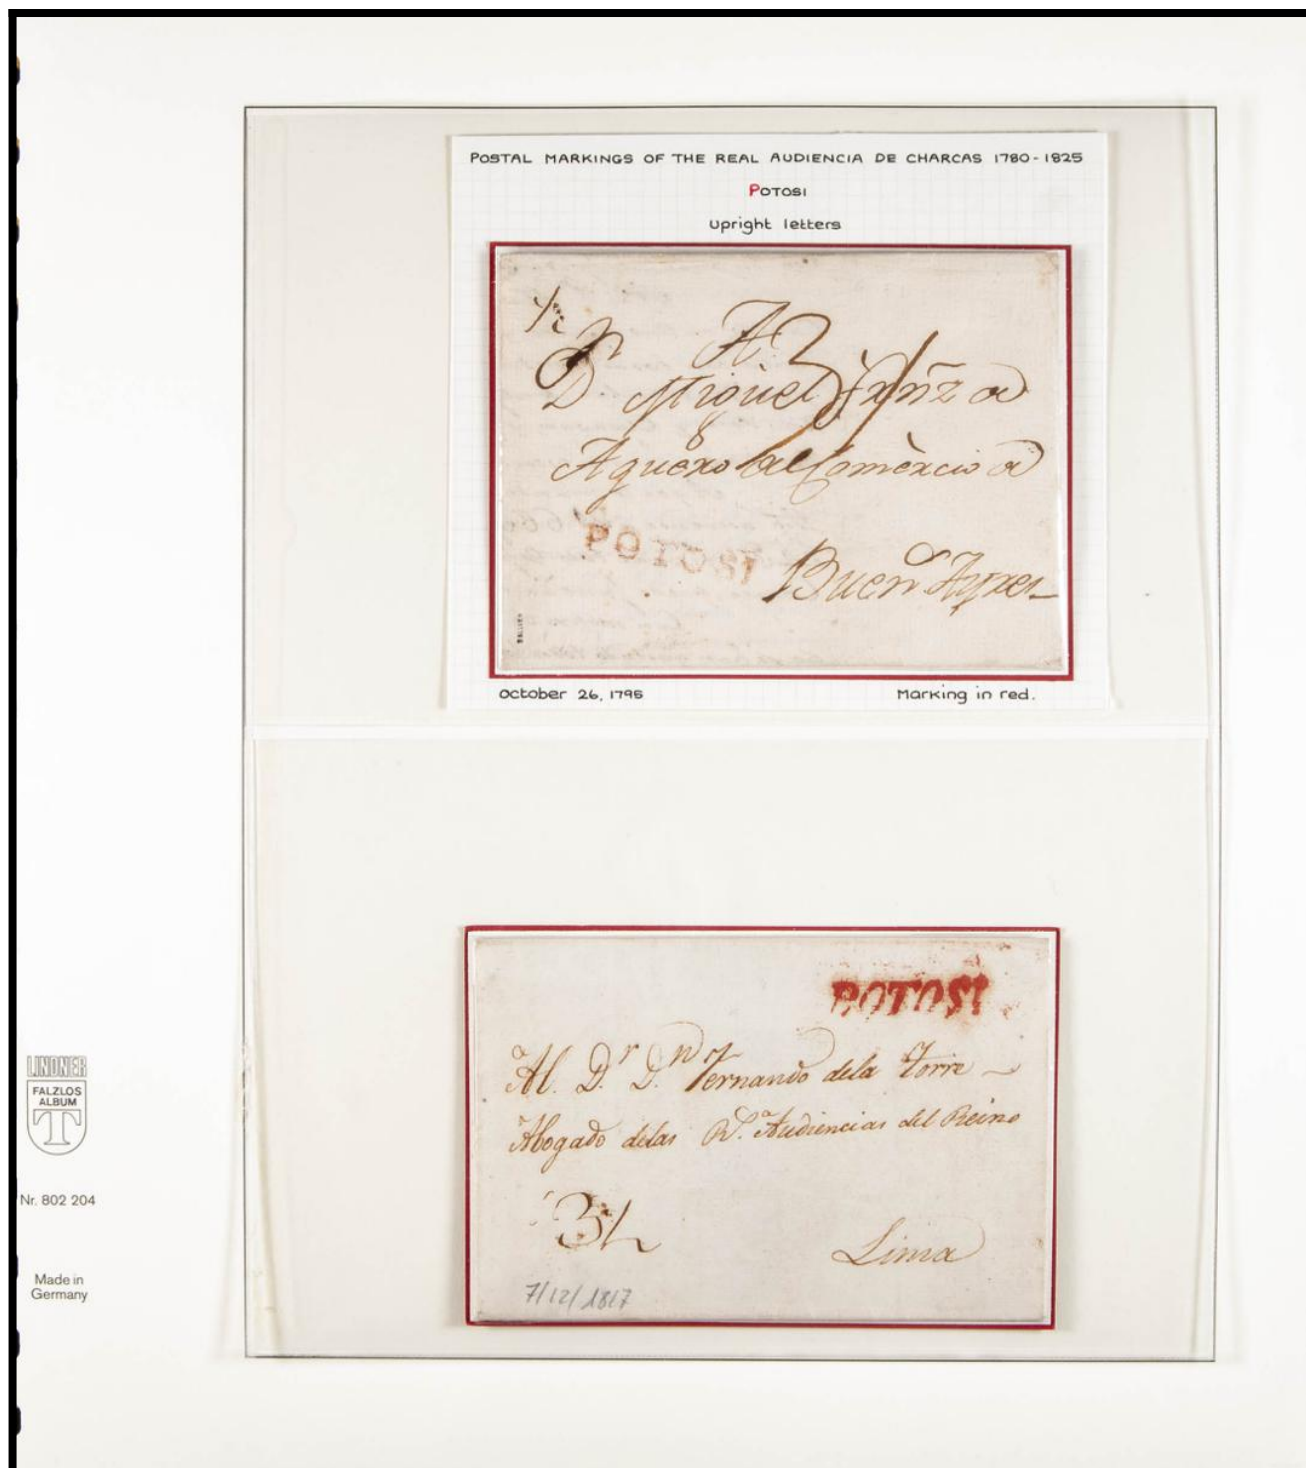 POSTAL MARKINGS OF THE REAL AUDIENCIA DE CHARCAS 1780-1825
POTOSI
upright letters
A
D. Miguel Frñz
Aguexo del Comèxcio
POTOSI
Buen Ayxes
October 26, 1795
Marking in red.
POTOSI
Al. D.r D.n Fernando dela Torre
Abogado delas R.s Audiencias del Reino
3½
Lima
7/12/1817
LINDNER
FALZLOS
ALBUM
T
Nr. 802 204
Made in
Germany